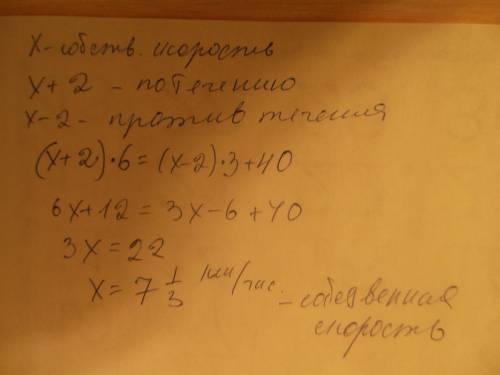 х - собств. скорость
х+2 - по течению
х-2 - против течения
(х+2)·6=(х-2)·3+40
6х+12=3х-6+40
3х=22
х=7 1/3 км/час. - собственная
скорость